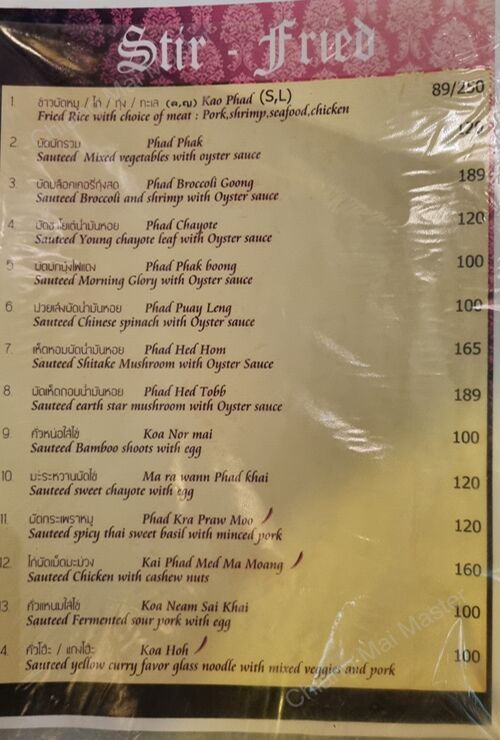 Stir - Fried
1. ข้าวผัดหมู / ไก่ / กุ้ง / ทะเล (ค,ญ) Kao Phad (S,L) 89/250
Fried Rice with choice of meat : Pork,shrimp,seafood,chicken
2. ผัดผักรวม Phad Phak 120
Sauteed Mixed vegetables with oyster sauce
3. ผัดบล็อคเคอรี่กุ้งสด Phad Broccoli Goong 189
Sauteed Broccoli and shrimp with Oyster sauce
4. ผัดชาโยเต้น้ำมันหอย Phad Chayote 120
Sauteed Young chayote leaf with Oyster sauce
5. ผัดผักบุ้งไฟแดง Phad Phak boong 100
Sauteed Morning Glory with Oyster sauce
6. ปวยเล้งผัดน้ำมันหอย Phad Puay Leng 100
Sauteed Chinese spinach with Oyster sauce
7. เห็ดหอมผัดน้ำมันหอย Phad Hed Hom 165
Sauteed Shitake Mushroom with Oyster Sauce
8. ผัดเห็ดถอบน้ำมันหอย Phad Hed Tobb 189
Sauteed earth star mushroom with Oyster sauce
9. คั่วหน่อใส่ไข่ Koa Nor mai 100
Sauteed Bamboo shoots with egg
10. มะระหวานผัดไข่ Ma ra wann Phad khai 120
Sauteed sweet chayote with egg
11. ผัดกระเพราหมู Phad Kra Praw Moo 120
Sauteed spicy thai sweet basil with minced pork
12. ไก่ผัดเม็ดมะม่วง Kai Phad Med Ma Moang 160
Sauteed Chicken with cashew nuts
13. คั่วแหนมใส่ไข่ Koa Neam Sai Khai 100
Sauteed Fermented sour pork with egg
4. คั่วโฮ๊ะ / แกงโฮ๊ะ Koa Hoh 100
Sauteed yellow curry favor glass noodle with mixed veggies and pork